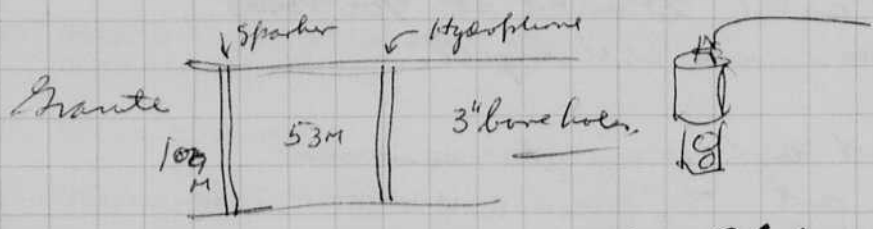 Sparker
Hydrophone
Granite
53M
3" bore holes.
M